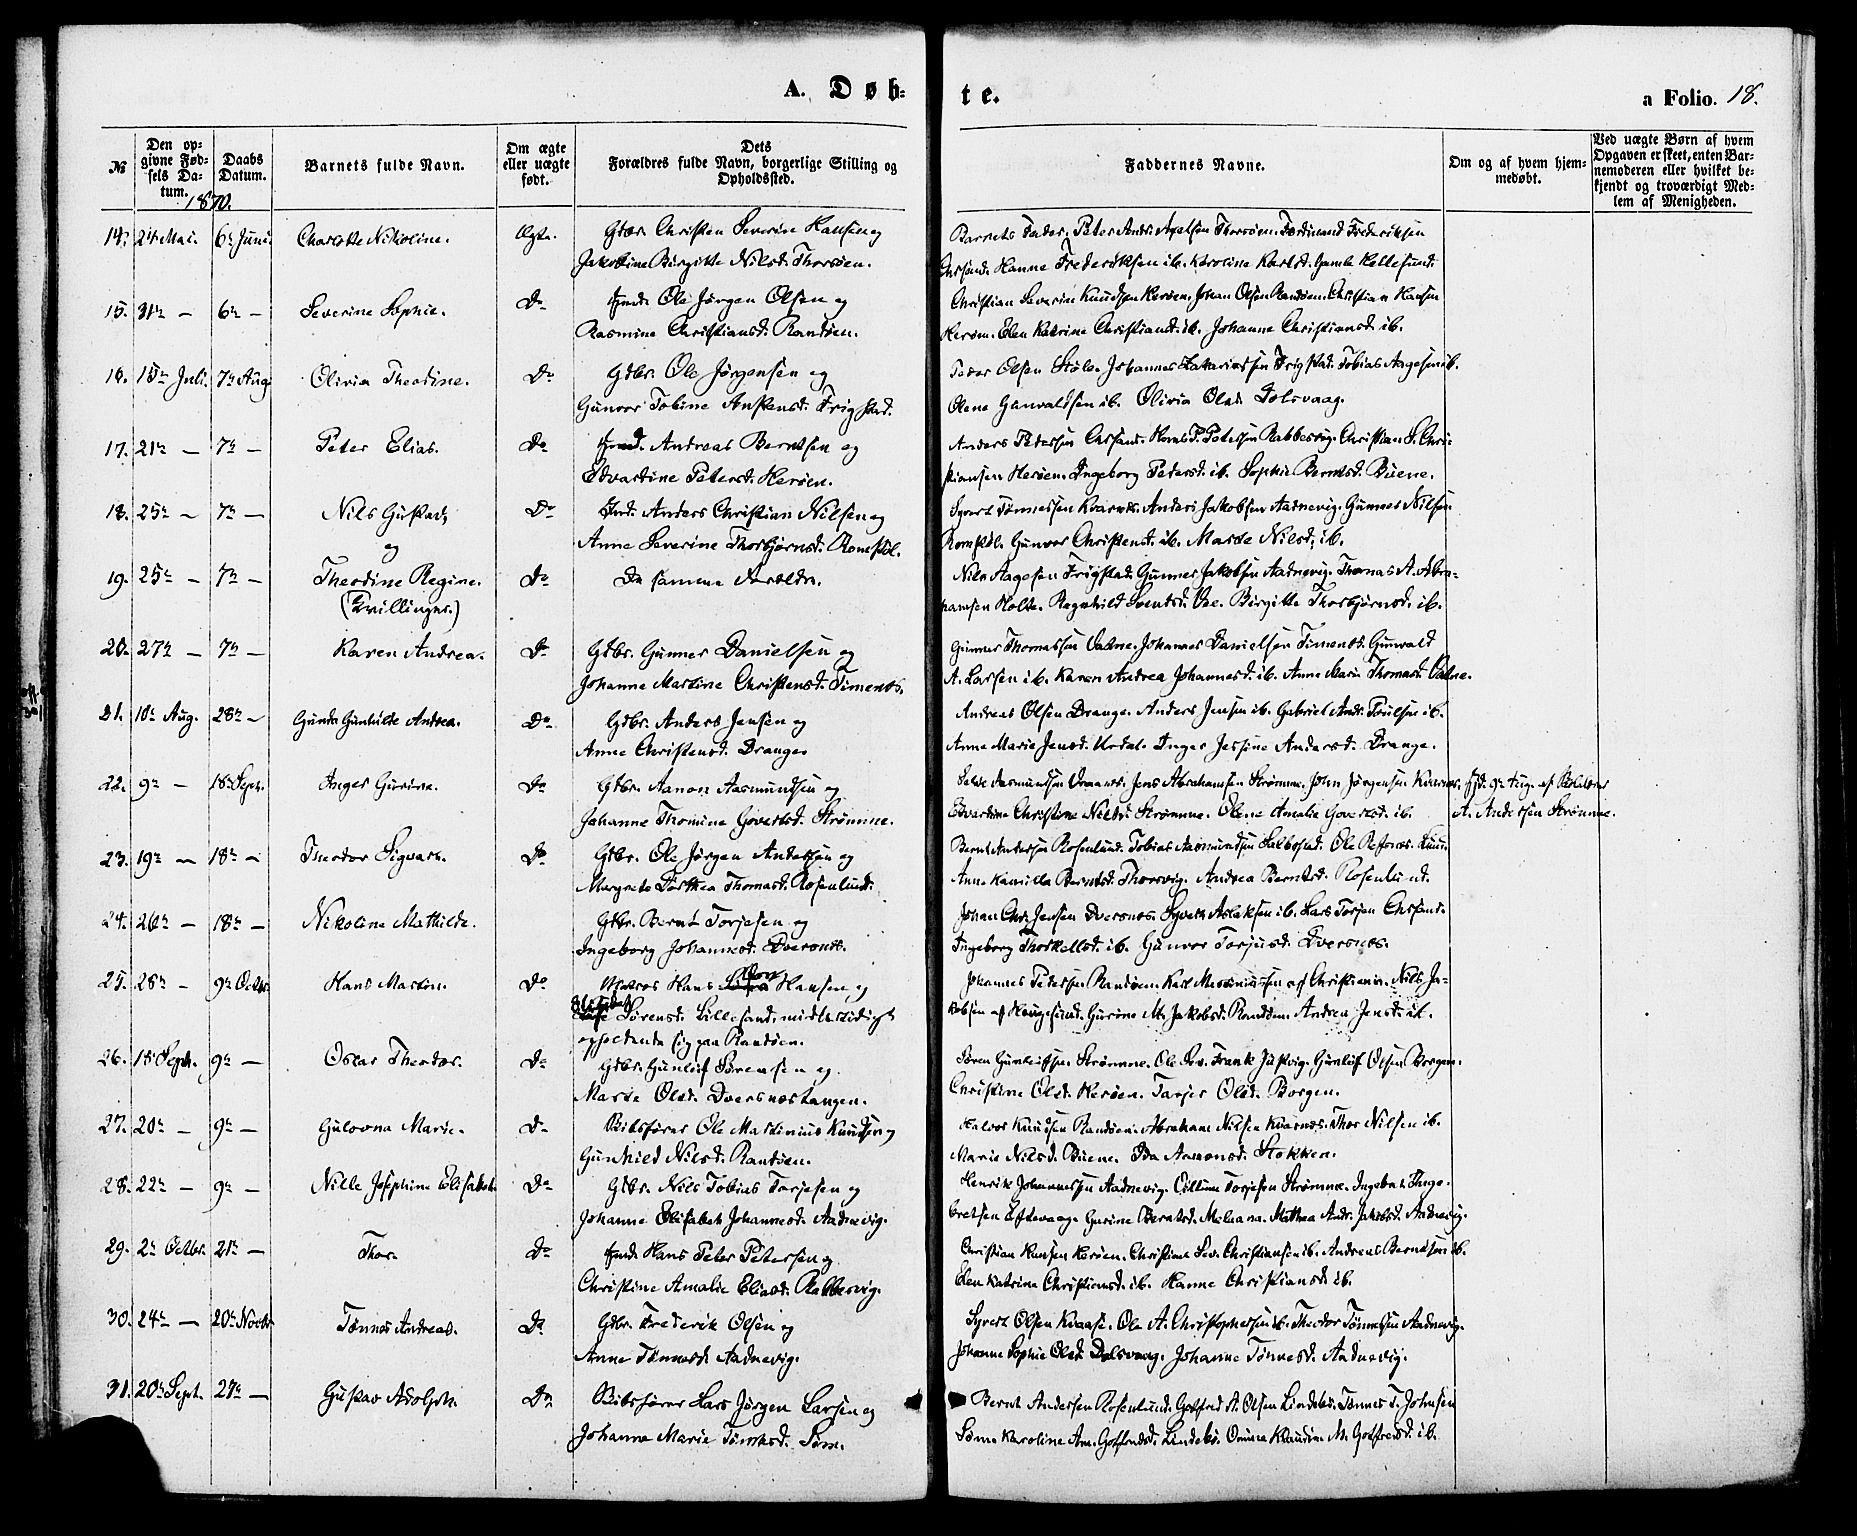 A. Døb-
te.
a Folio. 18.
№
Den op-
givne Fød-
sels Da-
tum.
1870.
Daabs
Datum.
Barnets fulde Navn.
Om ægte
eller uægte
født.
Dets
Forældres fulde Navn, borgerlige Stilling og
Opholdssted.
Faddernes Navne.
Om og af hvem hjem-
medøbt.
Ved uægte Børn af hvem
Opgaven er skeet, enten Bar-
nemoderen eller hvilket be-
kjendt og troværdigt Med-
lem af Menigheden.
14. 24 Mai. 6 Juni. Charlotte Nikoline. Ægte. Christen Severin Hansen og
Birgitte Nilsd. Thorsøen.
Barnets Fader. Peter Andr. Axelsen Thorsøen. Ferdinand Frederiksen
Hanne Frederiksen ib. Karoline Karlsd. Gamle Hellesund.
15. 31 — 6 — Severine Sophie. Do Ole Jørgen Olsen og
Rasmine Christiansd. Randøen.
Christian Severin Knudsen Herøen. Johan Olsen Randøen. Christian Hansen
Herøen. Elen Katrine Christiansd. ib. Johanne Christiansd. ib.
16. 15 Juli. 7 Aug. Olivia Theodine. Do Gdbr. Ole Jørgensen og
Gunvor Tobine Anstensd. Frigstad.
Peder Olsen Støle. Johannes Zakariassen Frigstad. Tobias Aagesen ib.
Olene Gunvaldsen ib. Olivia Olsd. Dolsvaag.
17. 21 — 7 — Peter Elias. Do Andreas Berntsen og
Edvardine Petersd. Herøen.
Anders Petersen Hans P. Petersen Rabbesvig. Christian S. Chri-
stiansen Herøen. Ingeborg Petersd. ib. Sophie Berntsd. Buene.
18. 25 — 7 — Nils Gustav, Do Anders Christian Nilsen og
og
Anne Severine Thorbjørnsd. Romstøl.
Syvert Tønnessen Anders Jakobsen Aadnevig. Gunner Nilsen
Romstøl. Gunvor Christensd. ib. Marte Nilsd. ib.
19. 25 — 7 — Theodine Regine. Do De samme Forældre.
(Tvillinger.)
Nils Aagesen Frigstad. Gunner Jakobsen Aadnevig. Thomas A. Abra-
hamsen Holte. Ragnhild Birgitte Thorbjørnsd. ib.
20. 27 — 7 — Karen Andrea. Do Gdbr. Gunner Danielsen og
Johanne Martine Christensd. Timenes.
Gunner Thomassen Johannes Danielsen Timenes. Gunvald
A. Larsen ib. Karen Andrea Johannesd. ib. Anne Marie Thomasd.
21. 10 Aug. 28 — Gunda Gunhilde Andrea. Do Gdbr. Anders Jensen og
Anne Christensd. Drange.
Andreas Olsen Drange. Anders Jensen ib. Gabriel Andr. ib.
Anne Marie Jensd. Inger Jessine Andersd. Drange.
22. 9 — 18 Sept. Inger Gurine. Do Gdbr. Aanon Aasmundsen og
Johanne Thomine Govertsd. Strømme.
Aasmundsen Jens Abrahamsen Strømme. John Jørgensen Kvarnes.
Edvardine Christine Nilsd. Strømme. Olene Amalie Govertsd. ib.
Hjd. 9 Aug. af
A. Andersen Strømme.
23. 19 — 18 — Theodor Sigvart. Do Gdbr. Ole Jørgen Andersen og
Margrete Dorthea Thomasd. Rosenlund.
Bernt Andersen Rosenlund. Tobias Aasmundsen Ole
Anne Kamilla Berntsd. Thorsvig. Andrea Berntsd. Rosenlund.
24. 26 — 18 — Nikoline Mathilde. Gdbr. Bernt Torjesen og
Ingeborg Johannesd. Dversnes.
Johan Chr. Jensen Dversnes. Syvert Aslaksen ib. Lars Torjesen
Ingeborg Thorkelsd. ib. Gunvor Torjusd. Dversnes.
25. 28 — 9 Octbr. Hans Martin. Do Matros Hans Hansen og
Sørensd. Lillesand, midlertidigt
opholdende sig paa Randøen.
Johannes Pedersen Randøen. Karl af Christiania. Nils Ja-
kobsen af Haugesund. Gurine M. Jakobsd. Randøen. Andrea Jensd. ib.
26. 18 Sept. 9 — Oscar Theodor. Do Gdbr. Gunluf Sørensen og
Marte Olsd. Dversnestangen.
Søren Gunlufsen Strømme. Ole Sev. Frank Justvig. Gunluf Olsen Borgen.
Christine Olsd. Herøen. Olsd. Borgen.
27. 20 — 9 — Gulovna Marie. Do Ole Martinius Knudsen og
Gunhild Nilsd. Randøen.
Halvor Knudsen Randøen. Abraham Nilsen Kvarnes. Thor Nilsen ib.
Marie Nilsd. Buene. Ida Aamonsd. Stokken.
28. 22 — 9 — Nille Josephine Elisabet. Do Gdbr. Nils Tobias Torjesen og
Johanne Elisabet Johannesd. Aadnevig.
Henrik Johannessen Aadnevig. Torjesen Strømme. Ingebret Inge-
bretsen Eftevaag. Gurine Berntsd. Mathea Andr. Jakobsd. Aadnevig.
29. 2 Octbr. 21 — Thor. Do Hans Peter Petersen og
Christine Amalie Eliasd. Rabbesvig.
Christian Hansen Herøen. Christian Sev. Christiansen ib. Andreas Berntsen ib.
Elen Katrine Christiansd. ib. Hanne Christiansd. ib.
30. 24 — 20 Novbr. Tønnes Andreas. Do Gdbr. Frederik Olsen og
Anne Tønnesd. Aadnevig.
Syvert Olsen Kvaase. Ole A. Christophersen ib. Theodor Tønnesen Aadnevig.
Johanne Sophie Olsd. Dolsvaag. Johanne Tønnesd. Aadnevig.
31. 20 Sept. 27 — Gustav Adolph. Do Lars Jørgen Larsen og
Johanne Marie Tønnesd. Søm.
Bernt Andersen Rosenlund. Gotfred A. Olsen Lindebø. Tønnes T. Johnsen
Søm. Karoline Am. Gotfredsd. Lindebø. M. Gotfredsd. ib.